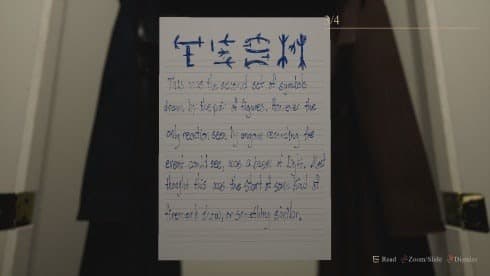 3/4
This was the second set of symbols
drawn by the pair of figures. However the
only reaction seen by anyone recording the
event could see, was a burst of light. Most
thought this was the start of some kind of
firework show, or something similar.
Read Zoom/Slide Dismiss